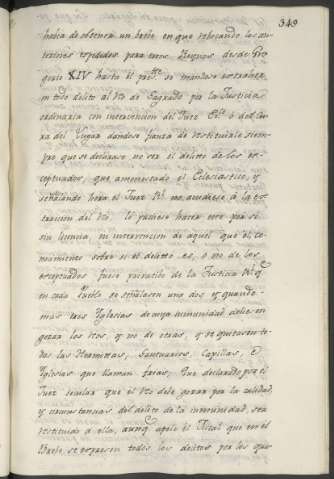 349
havia de obtener un breve, en que revocando los an-
teriores expedidos para estos Reynos desde Gre-
gorio XIV hasta el pres.te se mandase extraher
en todo delito al Reo de Sagrado por la Justicia
ordinaria con intervencion de Juez Ec.co ó del Cu-
ra del Lugar dandose fianza de restituirle siem-
pre que se declarase no ser el delito de los ex-
ceptuados, que amonestado el Eclesiastico, y
señalando hora el Juez R.l no acudiese á la ex-
traccion del Reo le pudiese hacer este por sí
sin licencia, ni intervencion de aquel que el co-
nocimiento sobre si el delito es, ó no de los
exceptuados fuese privativo de la Justicia R.l q.e
en cada Pueblo se señalasen una dos y quando
mas tres Iglesias de cuya inmunidad deben
gozar los reos, y no de otras, y se quitasen to-
das las Hermitas, Santuarios, Capillas, é
Iglesias que llaman frias; Que declarado por el
Juez secular que el Reo debe gozar por la calidad,
y circunstancias del delito de la inmunidad, sea
restituido a ella, aunq.e apele el Fiscal que en el
Breve se expresen todos los delitos por los que